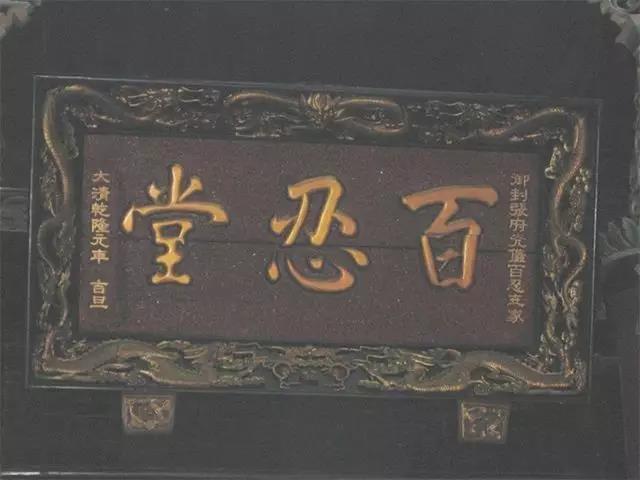 御封張府允儀百忍主家
百忍堂
大清乾隆元年 吉旦